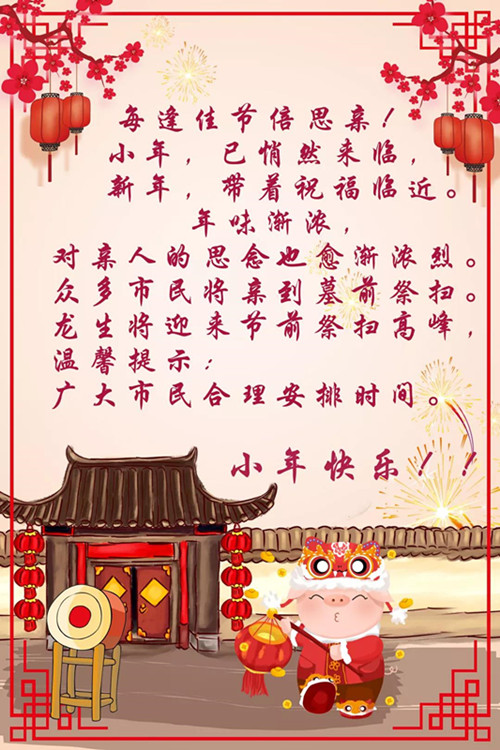 每逢佳节倍思亲！
小年，已悄然来临，
新年，带着祝福临近。
年味渐浓，
对亲人的思念也愈渐浓烈。
众多市民将亲到墓前祭扫。
龙生将迎来节前祭扫高峰，
温馨提示：
广大市民合理安排时间。
小年快乐！！